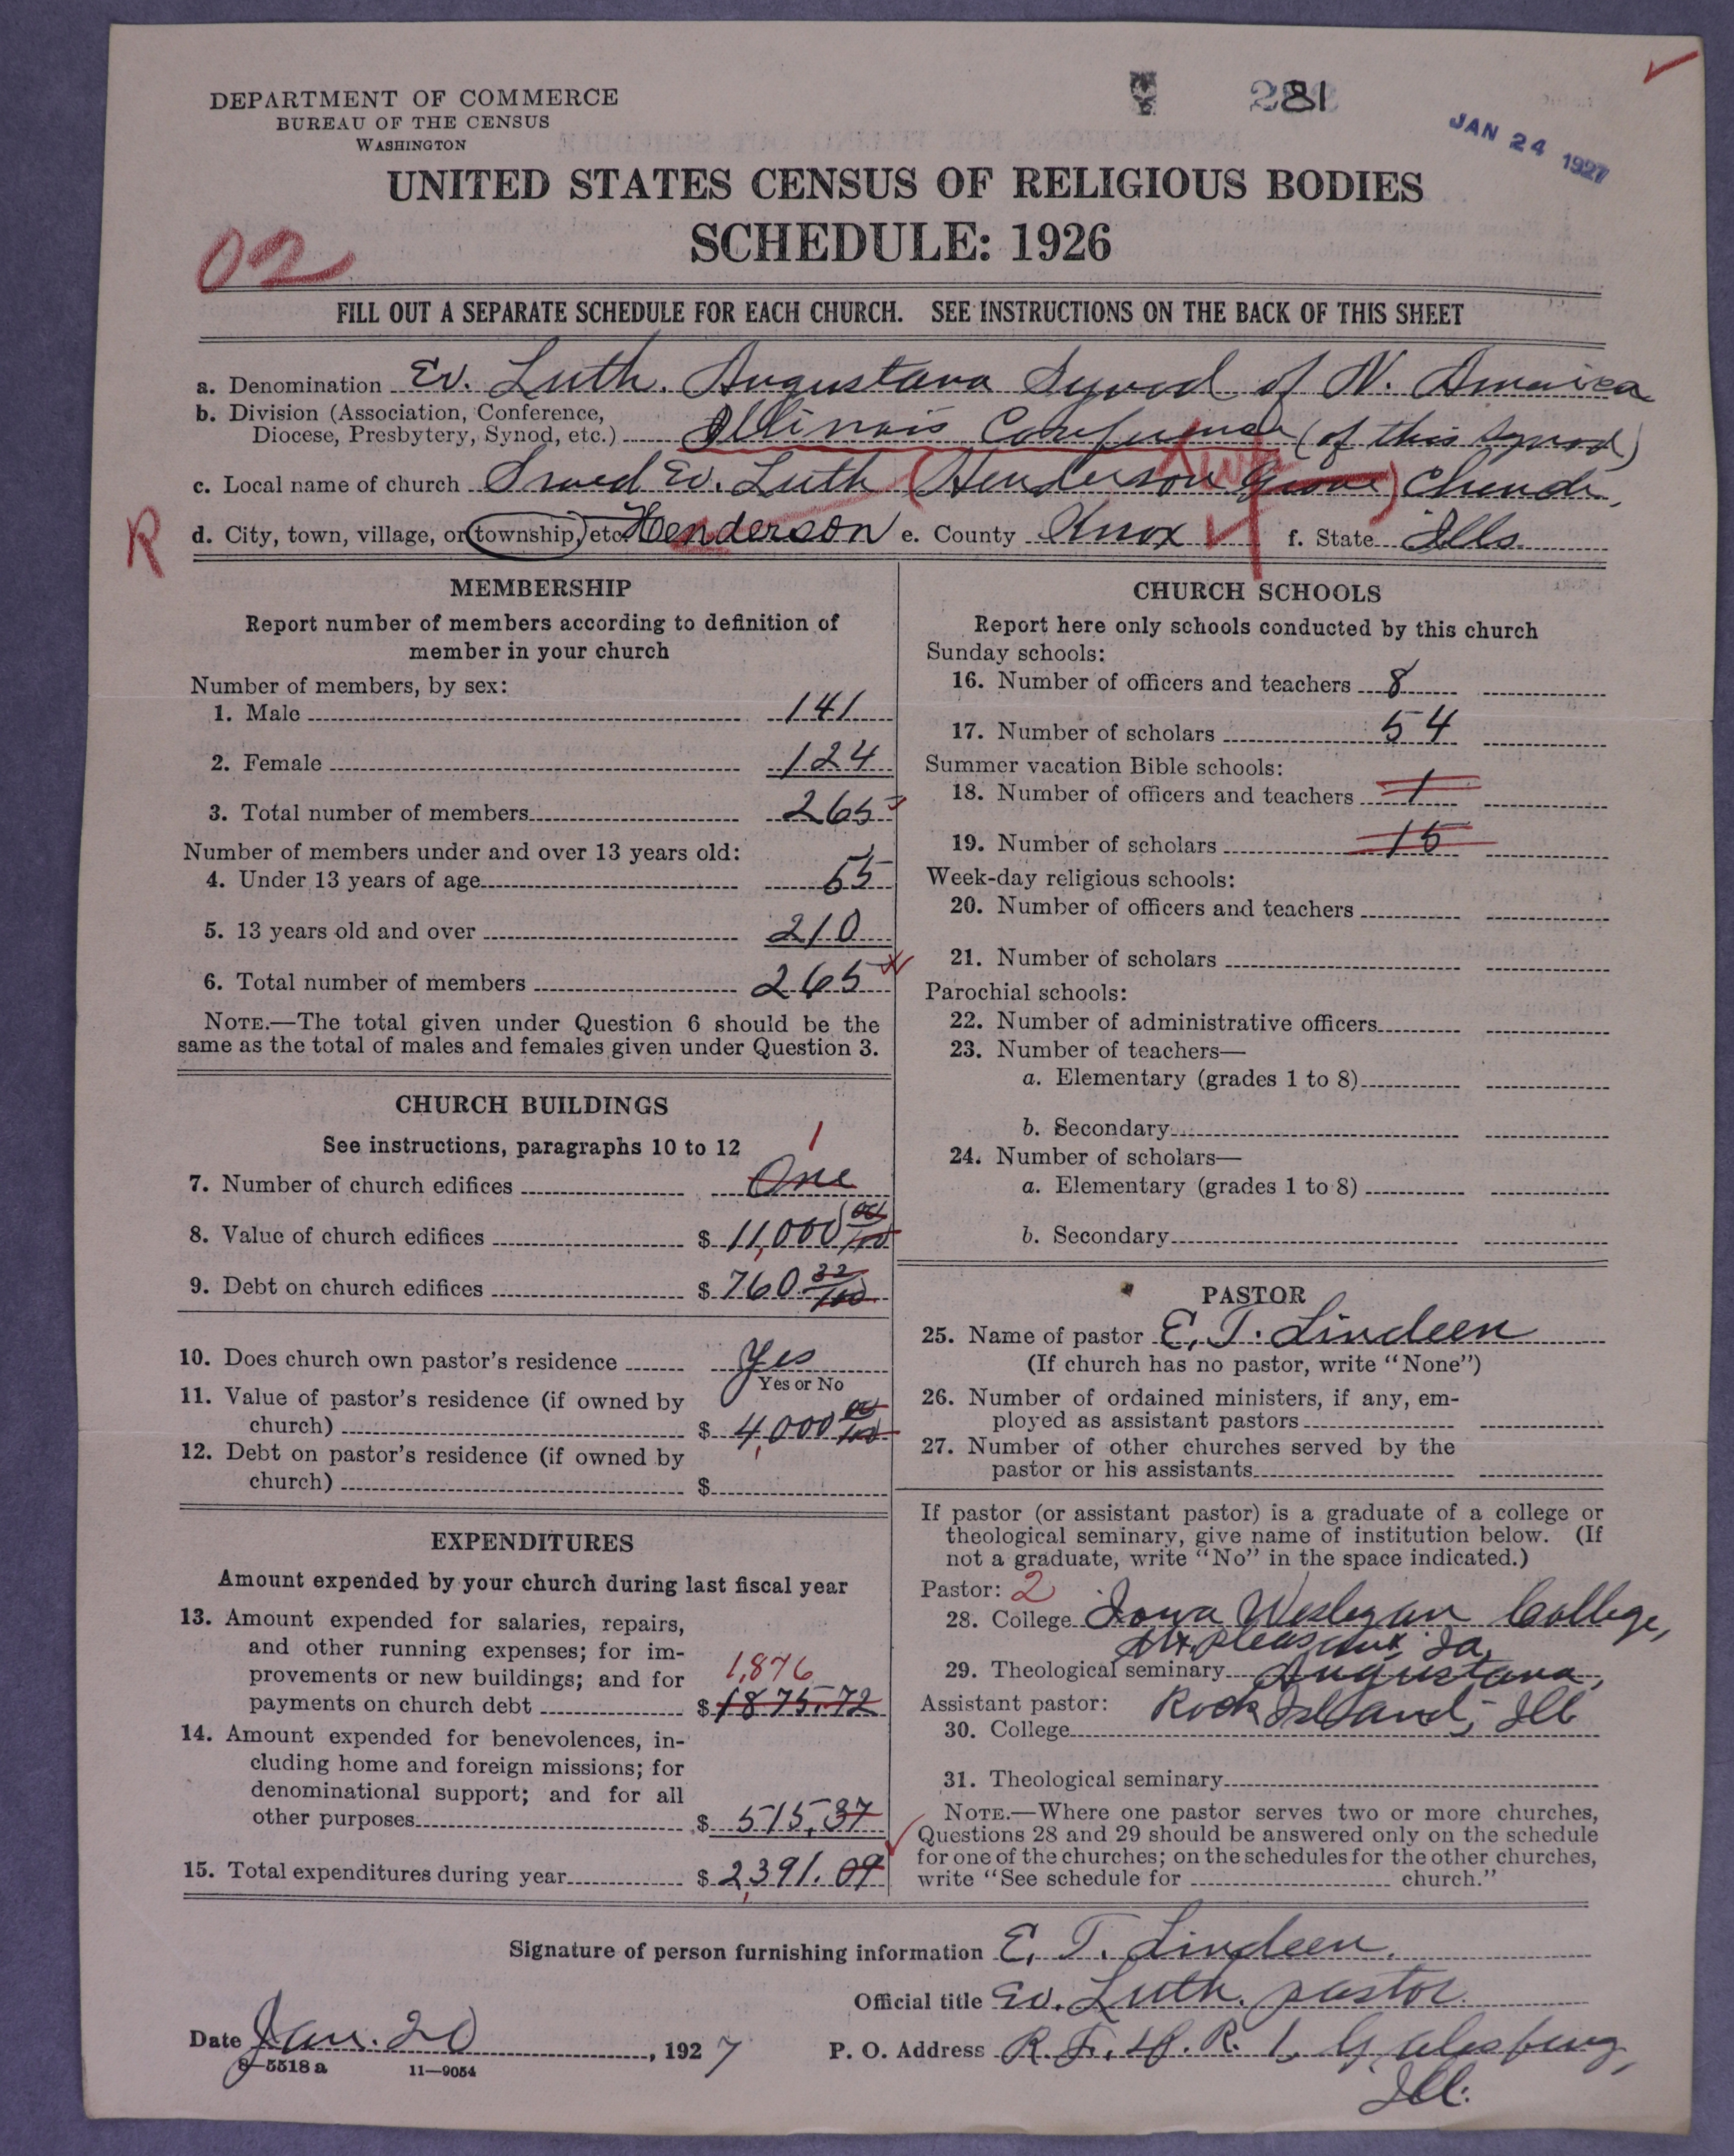 DEPARTMENT OF COMMERCE
BUREAU OF THE CENSUS
WASHINGTON
281
JAN 24 1927
UNITED STATES CENSUS OF RELIGIOUS BODIES
SCHEDULE: 1926
02
FILL OUT A SEPARATE SCHEDULE FOR EACH CHURCH. SEE INSTRUCTIONS ON THE BACK OF THIS SHEET
a. Denomination Ev. Luth. Augustana Synod of N. America
b. Division (Association, Conference,
Diocese, Presbytery, Synod, etc.) Illinois Conference (of this Synod)
c. Local name of church Swed Ev. Luth (Henderson Grove) Church,
R
d. City, town, village, or township, etc. Henderson e. County Knox f. State Ills.
MEMBERSHIP
Report number of members according to definition of
member in your church
Number of members, by sex:
1. Male 141
2. Female 124
3. Total number of members 265
Number of members under and over 13 years old:
4. Under 13 years of age 55
5. 13 years old and over 210
6. Total number of members 265
NOTE.—The total given under Question 6 should be the
same as the total of males and females given under Question 3.
CHURCH BUILDINGS
See instructions, paragraphs 10 to 12
1
7. Number of church edifices One
8. Value of church edifices $ 11,000 00/100
9. Debt on church edifices $ 760 32/100
10. Does church own pastor's residence Yes
Yes or No
11. Value of pastor's residence (if owned by
church) $ 4,000 00/100
12. Debt on pastor's residence (if owned by
church) $
EXPENDITURES
Amount expended by your church during last fiscal year
13. Amount expended for salaries, repairs,
and other running expenses; for im-
provements or new buildings; and for 1,876
payments on church debt $ 1875.72
14. Amount expended for benevolences, in-
cluding home and foreign missions; for
denominational support; and for all
other purposes $ 515.37
15. Total expenditures during year $ 2,391.09
CHURCH SCHOOLS
Report here only schools conducted by this church
Sunday schools:
16. Number of officers and teachers 8
17. Number of scholars 54
Summer vacation Bible schools:
18. Number of officers and teachers 1
19. Number of scholars 15
Week-day religious schools:
20. Number of officers and teachers
21. Number of scholars
Parochial schools:
22. Number of administrative officers
23. Number of teachers—
a. Elementary (grades 1 to 8)
b. Secondary
24. Number of scholars—
a. Elementary (grades 1 to 8)
b. Secondary
PASTOR
25. Name of pastor E. T. Lindeen
(If church has no pastor, write "None")
26. Number of ordained ministers, if any, em-
ployed as assistant pastors
27. Number of other churches served by the
pastor or his assistants
If pastor (or assistant pastor) is a graduate of a college or
theological seminary, give name of institution below. (If
not a graduate, write "No" in the space indicated.)
Pastor: 2
28. College Iowa Wesleyan College,
Mt. Pleasant, Ia.
29. Theological seminary Augustana,
Assistant pastor: Rock Island, Ill
30. College
31. Theological seminary
NOTE.—Where one pastor serves two or more churches,
Questions 28 and 29 should be answered only on the schedule
for one of the churches; on the schedules for the other churches,
write "See schedule for church."
Signature of person furnishing information E. T. Lindeen.
Official title Ev. Luth. pastor.
Date Jan. 20, 1927
P. O. Address R. F. D. R. 1, Galesburg,
Ill.
8-5518 a 11-9054